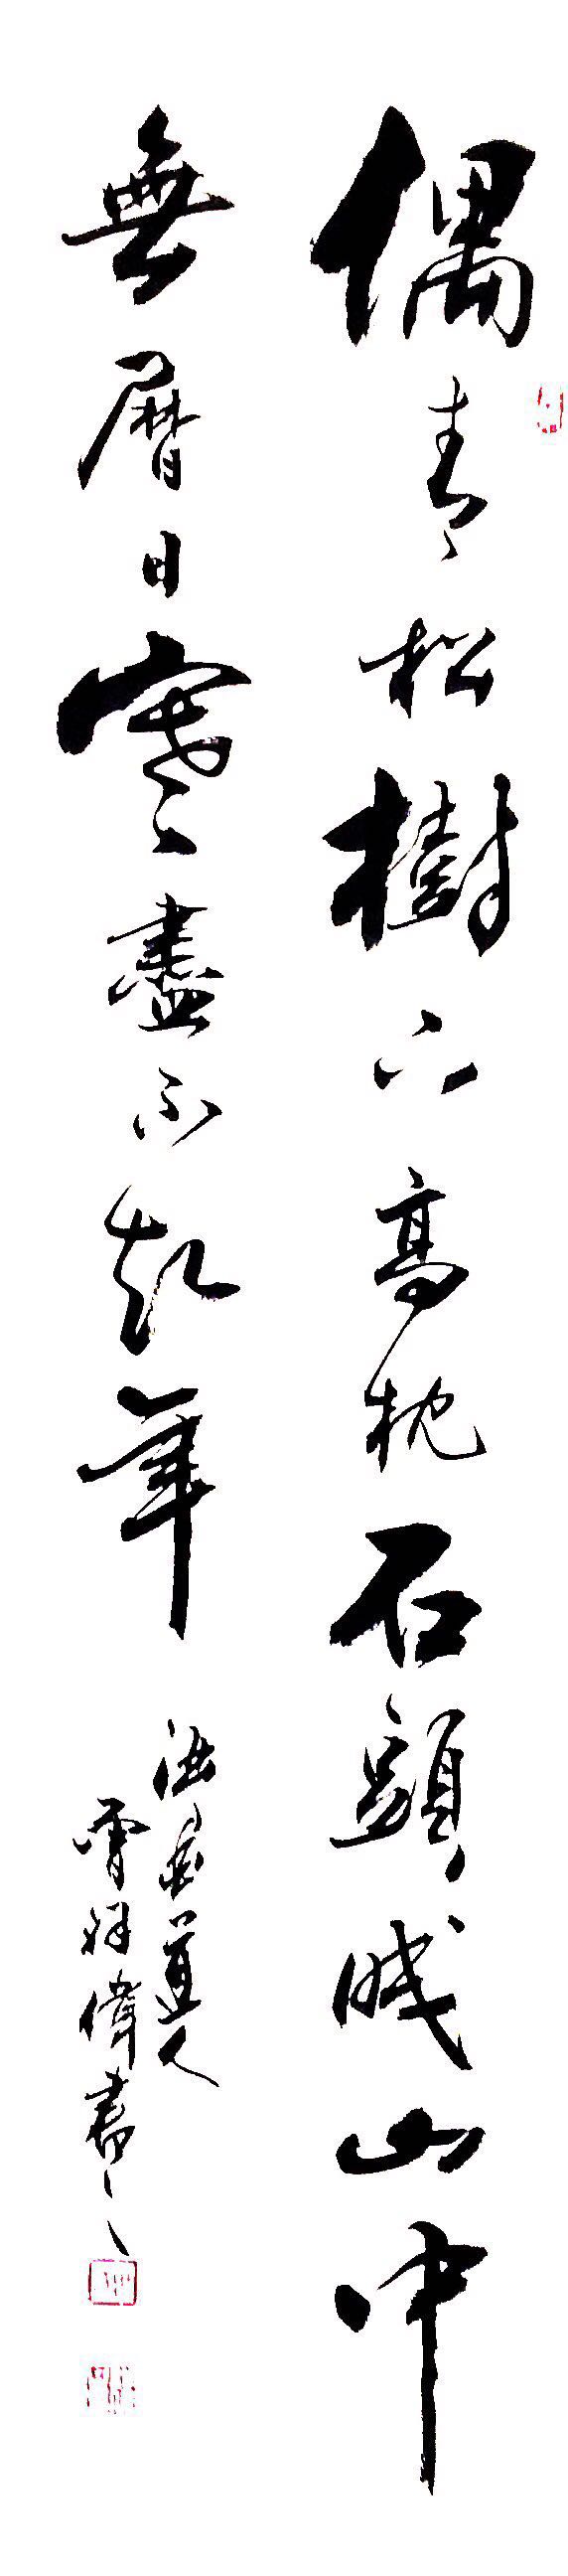 偶來松樹下高枕石頭眠山中
無曆日寒盡不知年
道人
祥偉書